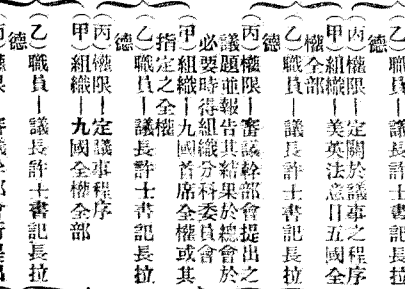 (乙)職員—議長許士書記長拉
德
(丙)權限—定關於議事之程序
(甲)組織—美英法意日五國全
權全部
(乙)職員—議長許士書記長拉
德
(丙)權限—審議幹部會提出之
議題並報告其結果於總會於
必要時得組織分科委員會
(甲)組織—九國首席全權或其
指定之全權
(乙)職員—議長許士書記長拉
德
(丙)權限—定議事程序
(甲)組織—九國全權全部
(乙)職員—議長許士書記長拉
德
(丙)權限—審議幹部會所提出